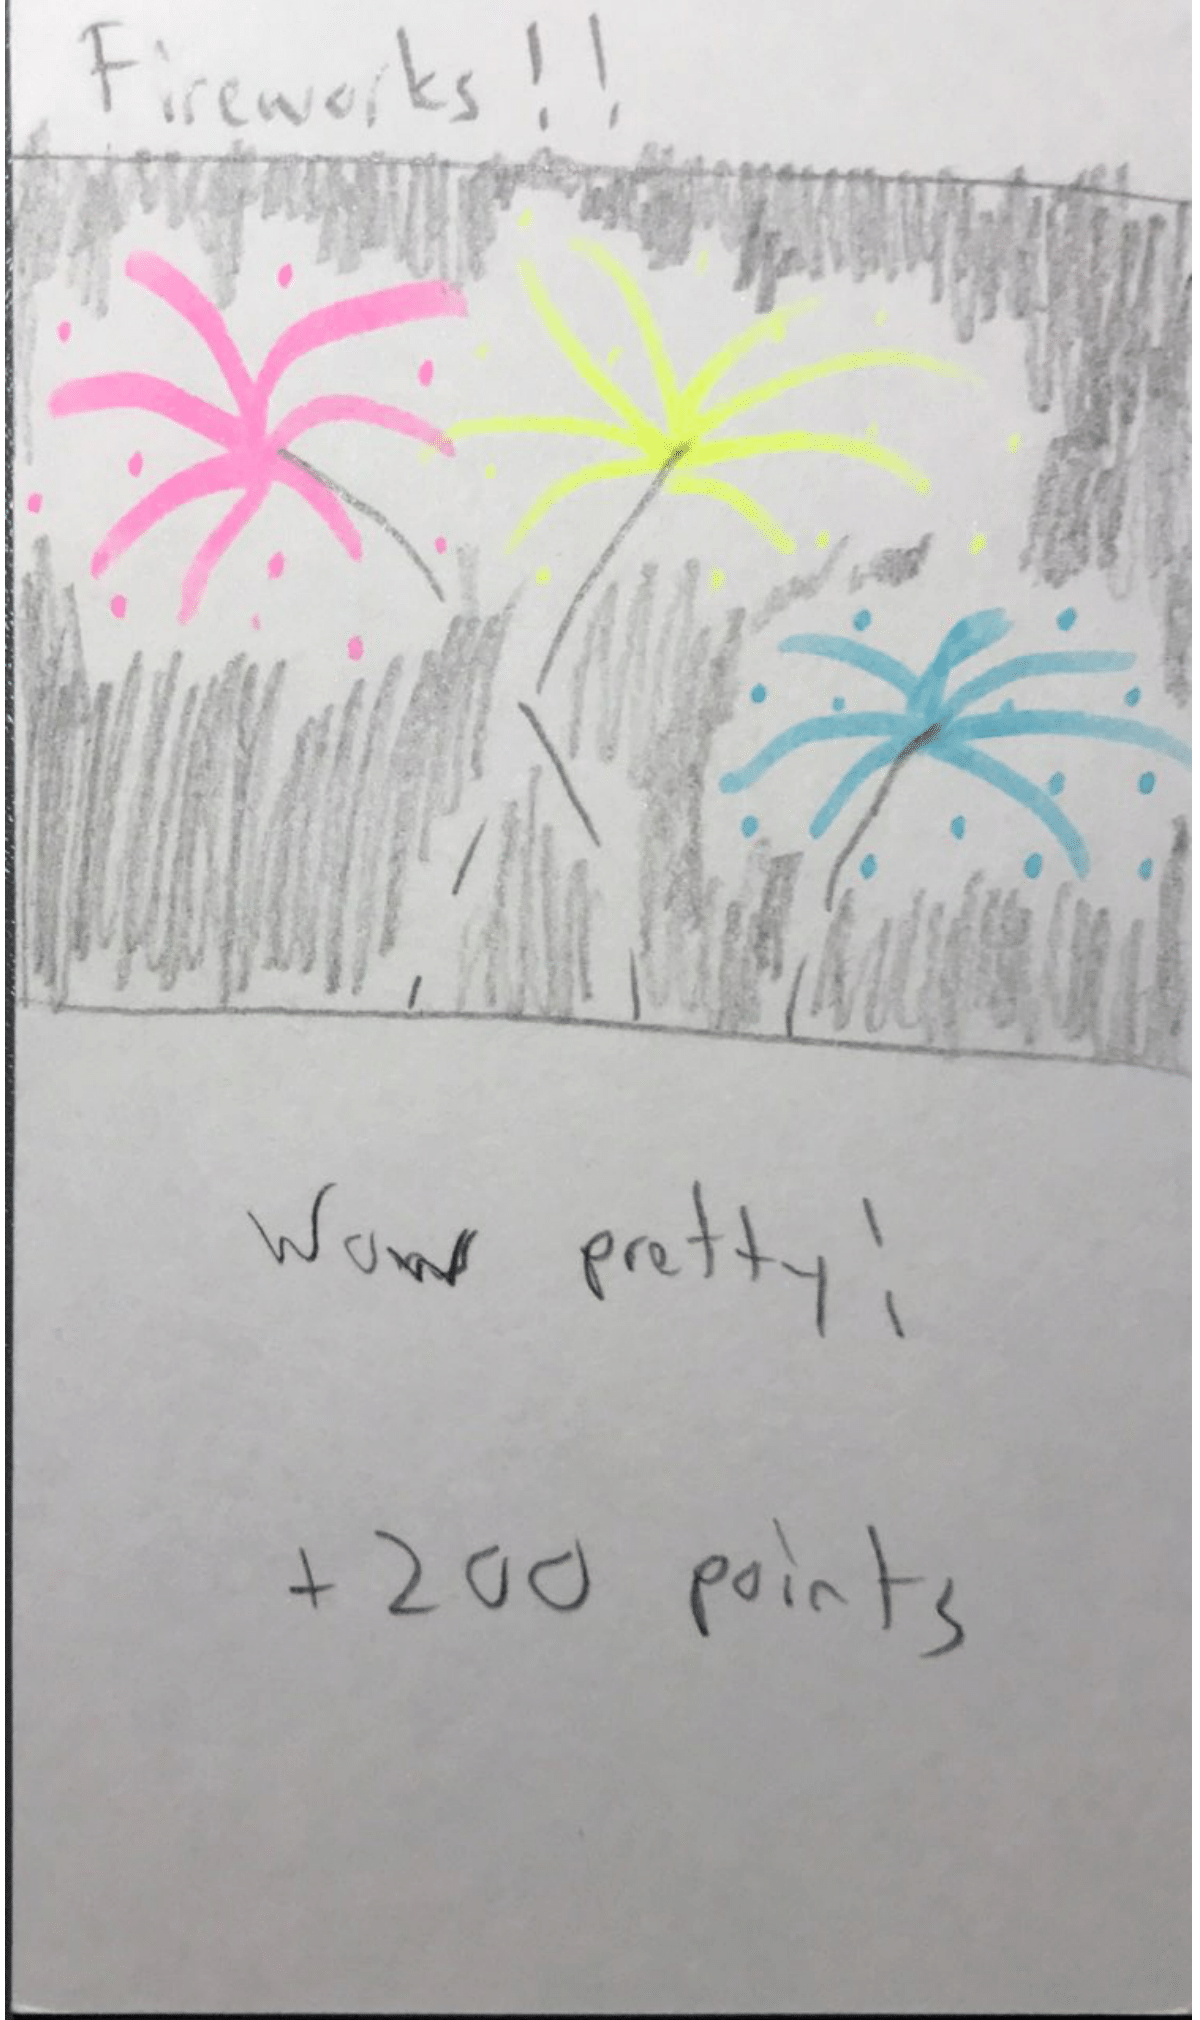 Fireworks!!
Wow pretty!
+200 points